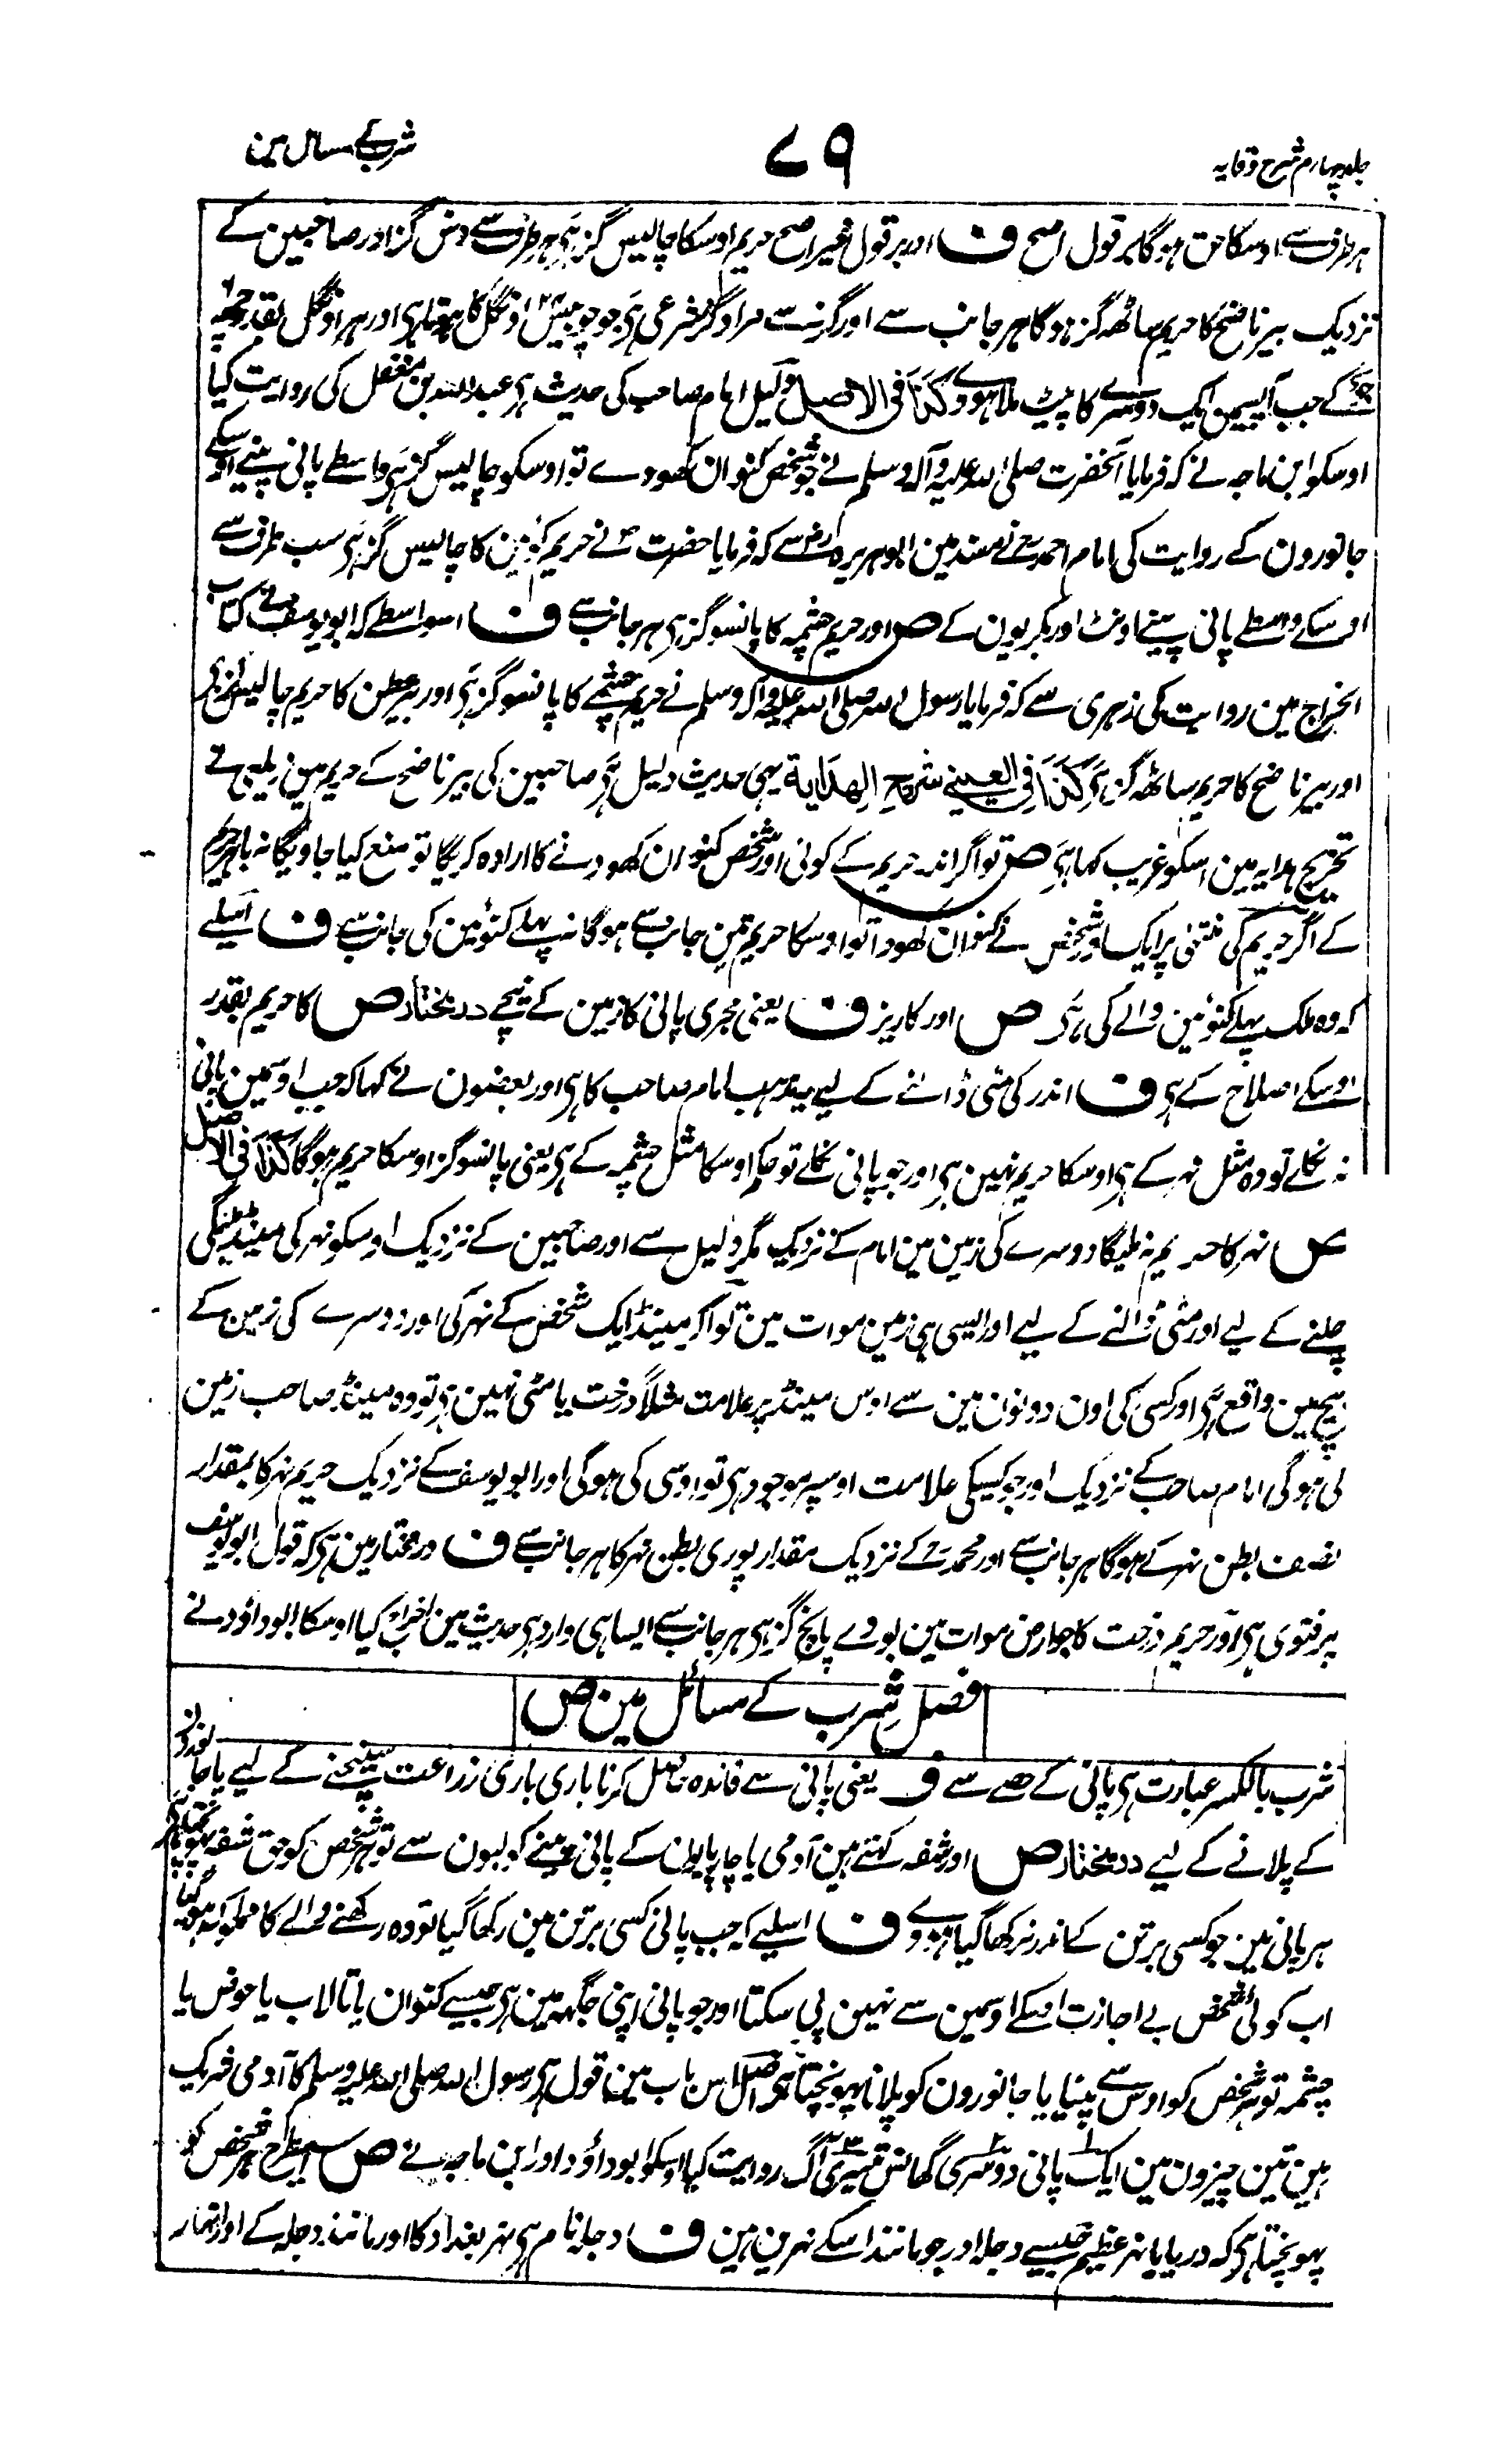 جلد چہارم شرح وقایہ
۷۹
شرب کے مسائل مین
ہر طرف سے اوسکا حق ہوگا بر قول اصح ف اور بر قول غیر اصح حریم اوسکا چالیس گز ہی ہر طرف سے دس گز اور صاحبین کے
نزدیک بیر ناضح کا حریم ساٹھ گز ہوگا ہر جانب سے اور گز سے مراد گز شرعی ہی جو چوبیس ۲۴ اونگل کا ہوتا ہی اور ہر اونگل بقدر چھہ ۶
جو کے جب آپسمین ایک دوسرے کا پیٹ ملا ہووے کذا فی الاصل دلیل امام صاحب کی حدیث ہی عبد اللہ بن مغفل کی روایت کیا
اوسکو ابن ماجہ نے کہ فرمایا آنحضرت صلی اللہ علیہ وآلہ وسلم نے جو شخص کنوان کھودے تو اوسکو چالیس گز ہی واسطے پانی پینے اوسکے
جانورون کے روایت کی امام احمد نے مسند مین ابو ہریرہ رض سے کہ فرمایا حضرت ؐ نے حریم کنوئین کا چالیس گز ہی سب طرف سے
اوسکے واسطے پانی پینے اونٹ اور بکریون کے ص اور حریم چشمہ کا پانسو گز ہی ہر جانب سے ف اسواسطے کہ ابو یوسف نے کتاب
الخراج مین روایت کی زہری سے کہ فرمایا رسول اللہ صلی اللہ علیہ وآلہ وسلم نے حریم چشمے کا پانسو گز ہی اور بیر عطن کا حریم چالیس گز ہی
اور بیر ناضح کا حریم ساٹھ گز ہی کذا فی العینی شرح الہدایۃ یہی حدیث دلیل ہی صاحبین کی بیر ناضح کے حریم مین زیلعی نے
تخریج ہدایہ مین اسکو غریب کہا ہی ص تو اگر اندر حریم کے کوئی اور شخص کنوان کھودنے کا ارادہ کریگا تو منع کیا جاویگا نہ باہر حریم
کے اگر حریم کی منتہی پر ایک اور شخص نے کنوان کھودا تو اوسکا حریم تین جانب سے ہوگا نہ پہلے کنوئین کی جانب سے ف اسلیے
کہ وہ ملک پہلے کنوئین والے کی ہی ص اور کاریز ف یعنی مجری پانی کا زمین کے نیچے درمختار ص کا حریم بقدر
اوسکے اصلاح کے ہی ف اندر کی مٹی ڈالنے کے لیے یہ مذہب امام صاحب کا ہی اور بعضون نے کہا کہ جب اوسمین پانی
نہ نکلے تو وہ مثل نہر کے ہی اوسکا حریم نہین ہی اور جو پانی نکلے تو حکم اوسکا مثل چشمہ کے ہی یعنی پانسو گز اوسکا حریم ہوگا کذا فی الاصل
ص نہر کا حریم نہ ملیگا دوسرے کی زمین مین امام کے نزدیک مگر دلیل سے اور صاحبین کے نزدیک اوسکو نہر کی مینڈ ملیگی
چلنے کے لیے اور مٹی ڈالنے کے لیے اور ایسی ہی زمین موات مین تو اگر مینڈ ایک شخص کے نہر کی اور دوسرے کی زمین کے
بیچمین واقع ہی اور کسی کی اون دونون مین سے اوس مینڈ پر علامت مثلاً درخت یا مٹی نہین ہی تو وہ مینڈ صاحب زمین
کی ہوگی امام صاحب کے نزدیک اور جو کسیکی علامت اوسپر موجود ہی تو اوسی کی ہوگی اور ابو یوسف کے نزدیک حریم نہر کا بمقدار
نصف بطن نہر کے ہوگا ہر جانب سے اور محمد رح کے نزدیک مقدار پوری بطن نہر کا ہر جانب سے ف درمختار مین ہی کہ قول ابو یوسف
پر فتوی ہی اور حریم درخت کا جو ارض موات مین بووے پانچ گز ہی ہر جانب سے ایسا ہی وارد ہی حدیث مین اخراج کیا اوسکا ابو داؤد نے
فصل شرب کے مسائل مین ص
شرب بالکسر عبارت ہی پانی کے حصے سے ف یعنی پانی سے فائدہ حاصل کرنا باری باری زراعت سینچنے کے لیے یا جانورون
کے پلانے کے لیے درمختار ص اور شفہ کہتے ہین آدمی یا چارپایون کے پانی پینے کو لبون سے تو ہر شخص کو حق شفہ پہونچتا ہی
ہر پانی مین جو کسی برتن کے اندر نہ رکھا گیا ہووے ف اسلیے کہ جب پانی کسی برتن مین رکھا گیا تو وہ رکھنے والے کا مملوک ہو گیا
اب کوئی شخص بے اجازت اوسکے اوسمین سے نہین پی سکتا اور جو پانی اپنی جگہہ مین ہی جیسے کنوان یا تالاب یا حوض یا
چشمہ تو ہر شخص کو اوس سے پینا یا جانورون کو پلانا پہونچتا ہی اصل اس باب مین قول ہی رسول اللہ صلی اللہ علیہ وسلم کا آدمی شریک
ہین تین چیزون مین ایک ۱ پانی دوسری ۲ گھانس تیسری ۳ آگ روایت کیا اوسکو ابو داؤد اور ابن ماجہ نے ص اسیطرح ہر شخص کو
پہونچتا ہی کہ دریا یا نہر عظیم جیسے دجلہ اور جو مانند اسکے نہرین ہین ف دجلہ نام ہی نہر بغداد کا اور مانند دجلہ کے اور انہار